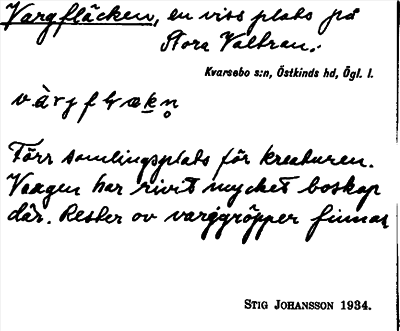 Vargfläcken, en viss plats på
Stora Valtran.
Kvarsebo s:n, Östkinds hd, Ögl. l.
Förr samlingsplats för kreaturen.
Vargen har rivit mycket boskap
där. Rester av varggropper finnas
STIG JOHANSSON 1934.